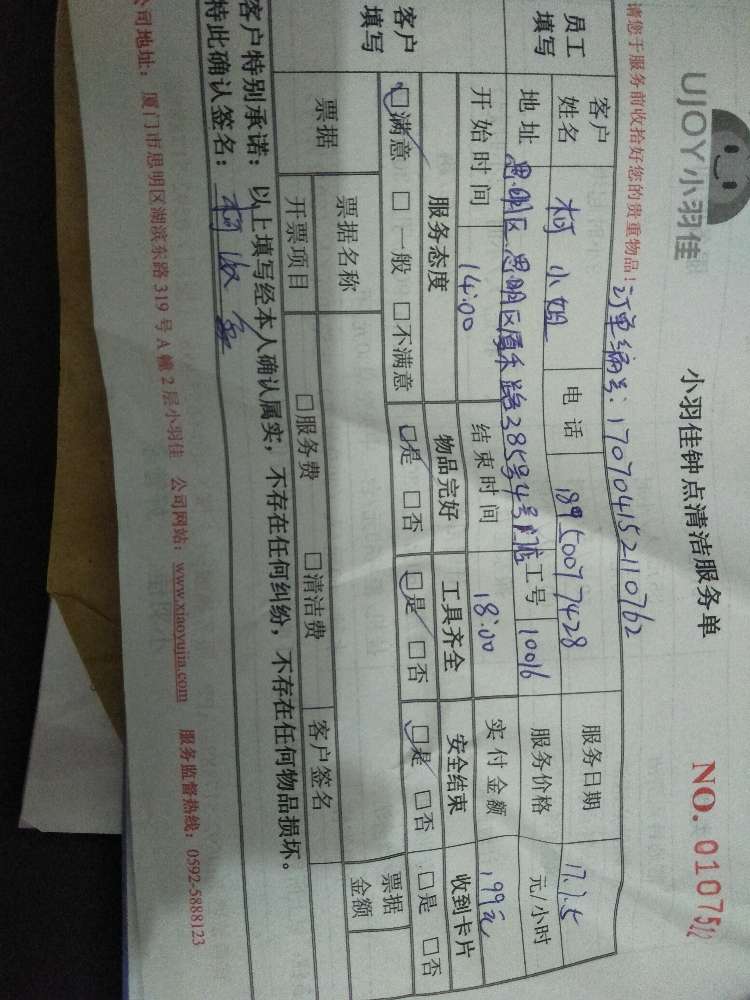 UJOY小羽佳
小羽佳钟点清洁服务单
NO. 0107512
请您于服务前收拾好您的贵重物品!
订单编号: 170704152110762
员工填写
客户姓名 柯小姐 电话 18950077428 服务日期 17.7.5
地址 思明区思明区厦禾路385号4号门店 工号 10016 服务价格 元/小时
开始时间 14:00 结束时间 18:00 实付金额 199元
客户填写
服务态度 物品完好 工具齐全 安全结束 收到卡片
□满意 □一般 □不满意 □是 □否 □是 □否 □是 □否 □是 □否
票据 票据名称 票据金额
开票项目 □服务费 □清洁费 客户签名
客户特别承诺:以上填写经本人确认属实,不存在任何纠纷,不存在任何物品损坏。
特此确认签名: 柯
公司地址: 厦门市思明区湖滨东路319号A幢2层小羽佳 公司网站: www.xiaoyujia.com 服务监督热线: 0592-5888123